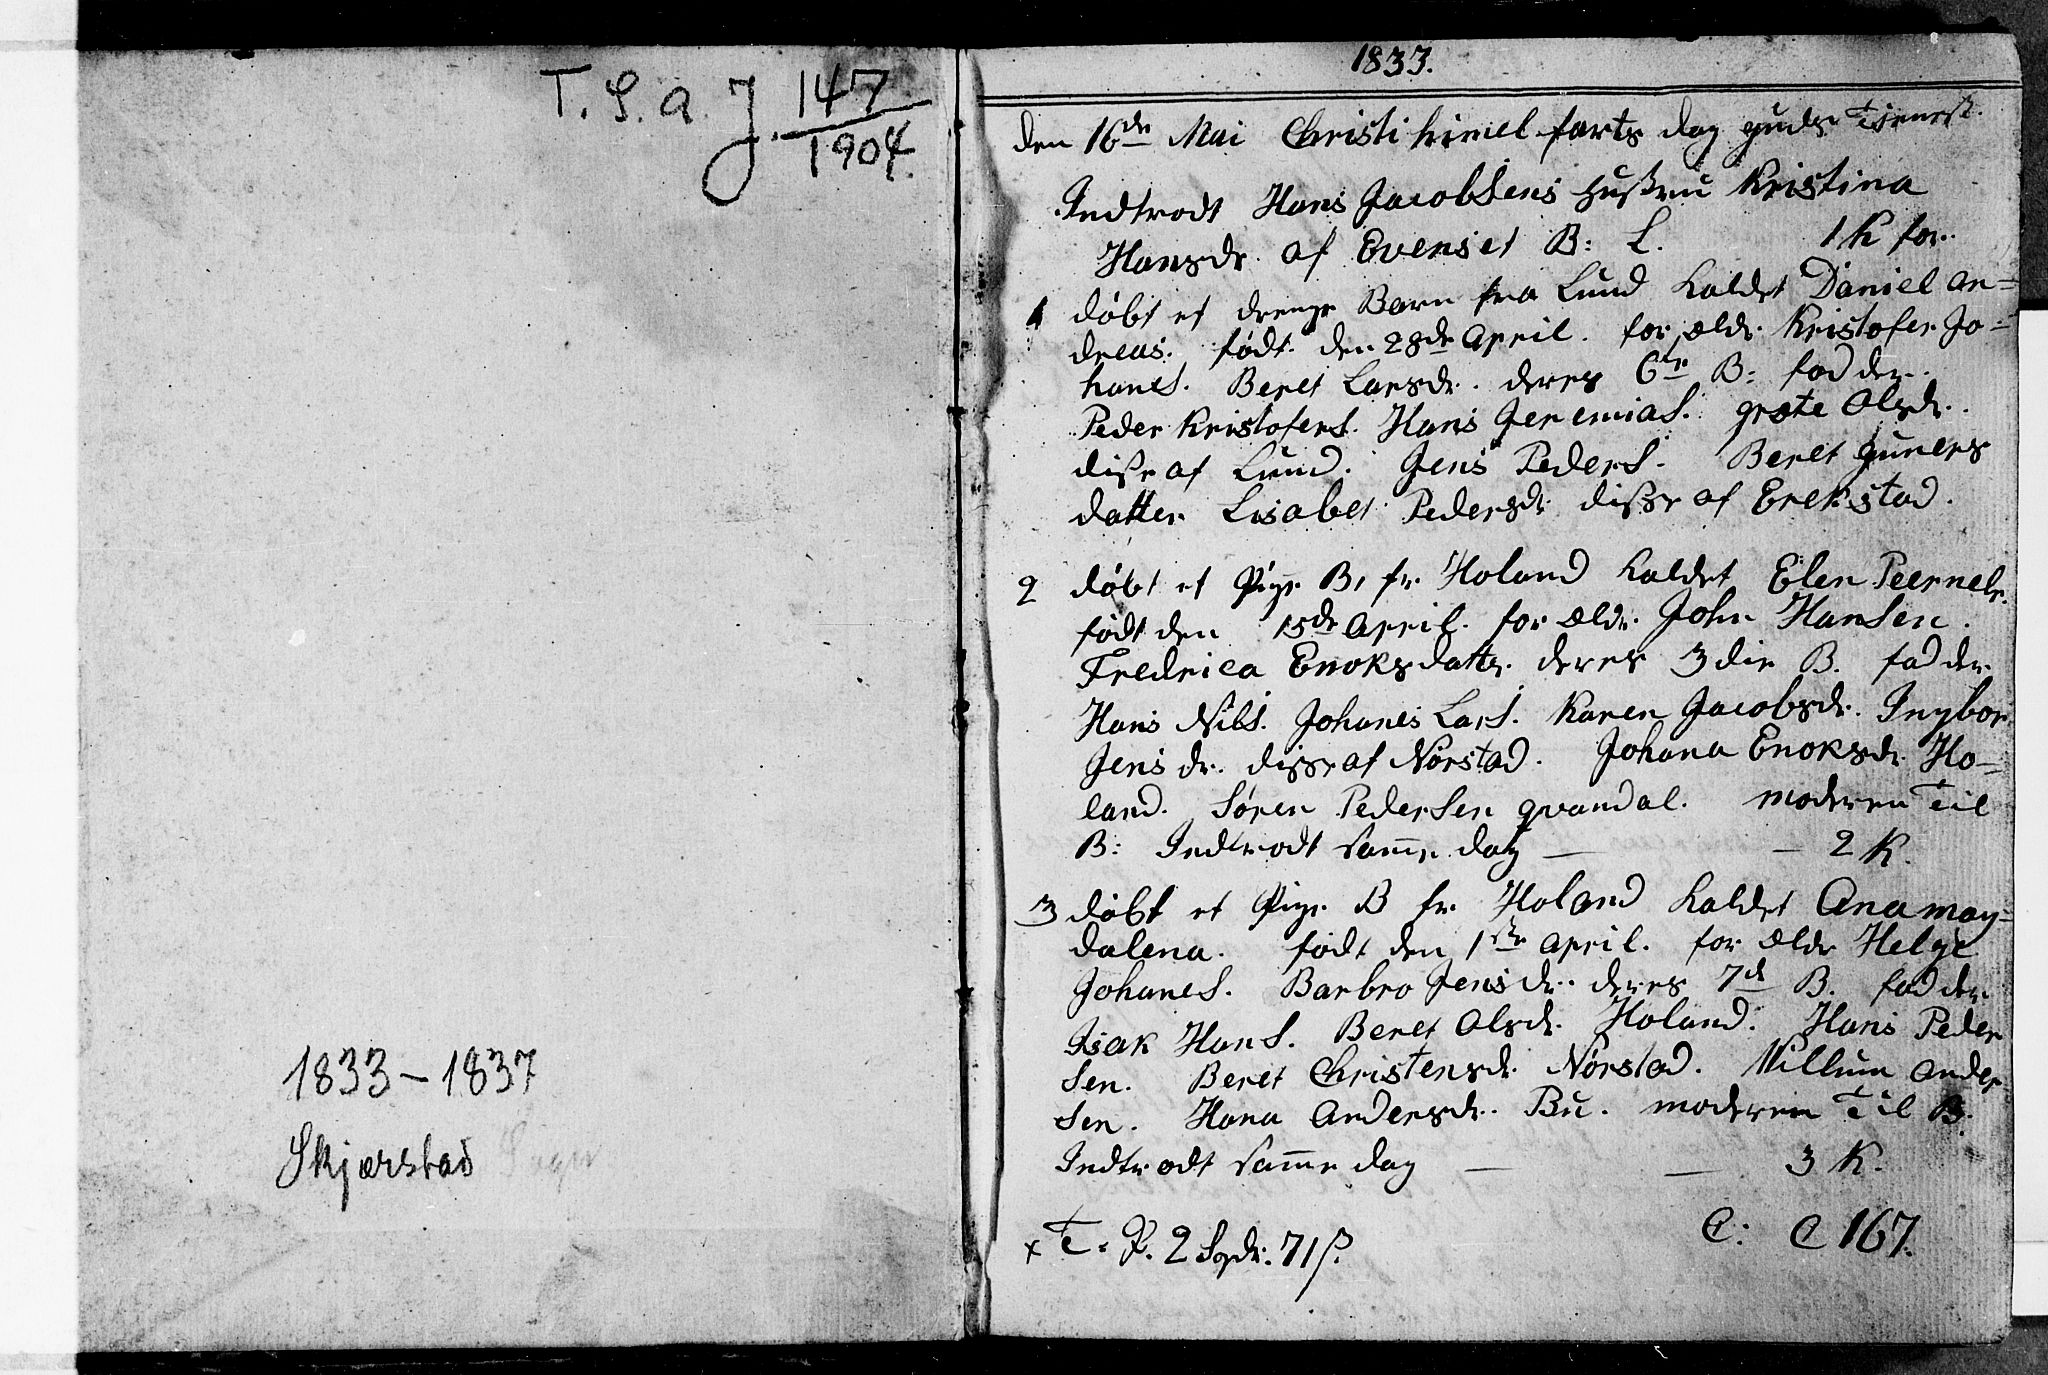 T. S. a. J. 147
1904.
1833–1837
Skjærstad Sogn
1833.
den 16de Mai Christi himel farts dag guds Tienest.
Indtrodt Hans Jacobsens Hustru Kristina
Hansdr af Evenset B: L. 1 K for.
1 døbt et drenge Barn fra Lund kaldet Daniel An=
dreas. født den 28de April. for ældr. Kristofer Jo=
hanes. Beret Larsdr. deres 6te B: fadder.
Peder Kristofers. Hans Jeremias. grete Olsdr.
disse af Lund. Jens Peders. Beret guners
datter Lisabet Pedersdr disse af Erekstad.
2 døbt et Pige B, fr. Holand kaldet Elen Peernele.
født den 15de April. for ældr. John Hansen.
Fredrica Enoksdattr. deres 3die B. fadder
Hans Nils. Johanes Lars. Karen Jacobsdr. Ingbor
Jensdr. disse af Nørstad. Johana Enoksdr Ho=
land. Søren Pedersen qvandal. moderen Til
B: Indtrodt samme dag — — 2 K.
3 døbt et Pige B fr. Holand kaldet Ana mag=
dalena. født den 1ste April. for ældr Helge
Johanes. Barbro Jensdr. deres 7de B. fadder
Isak Hans. Beret Olsdr. Holand. Hans Peder
sen. Beret Christensdr Nørstad. Villum Ander
sen. Hana Andersdr. Bu. moderen Til B.
Indtrodt samme dag — — 3 K.
C: C 167.
x T. P. 2 Spdr. 71 ß.